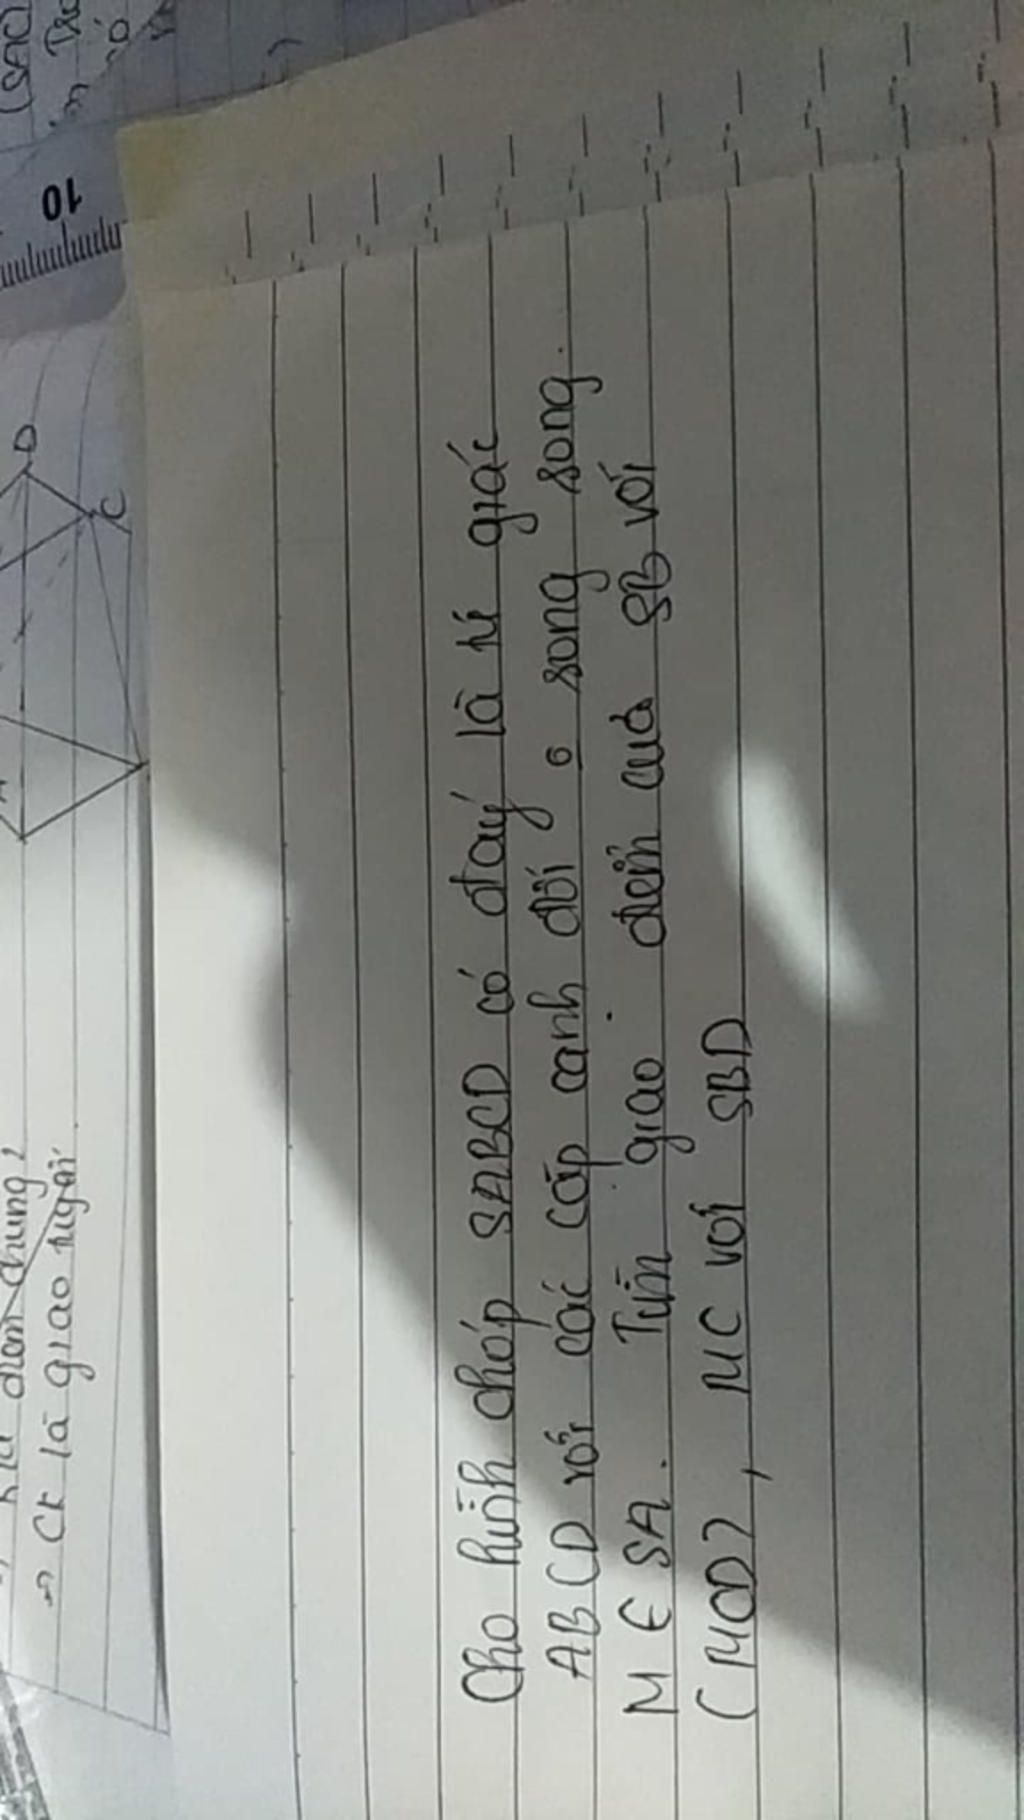 (SAC)
10
D
C
điểm chung 2
=> CK là giao tuyến
Cho hình chóp SABCD có đáy là tứ giác
ABCD với các cặp cạnh đối ko song song.
M ∈ SA. Tìm giao điểm của SB với
(MCD), MC với SBD